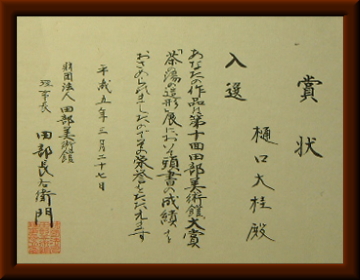 賞状
樋口大桂殿
入選
あなたの作品は第十回田部美術館大賞
「茶の湯の造形」展において頭書の成績を
おさめられましたのでその栄誉をたたえます
平成五年三月二十七日
財団法人 田部美術館
理事長 田部長右衛門